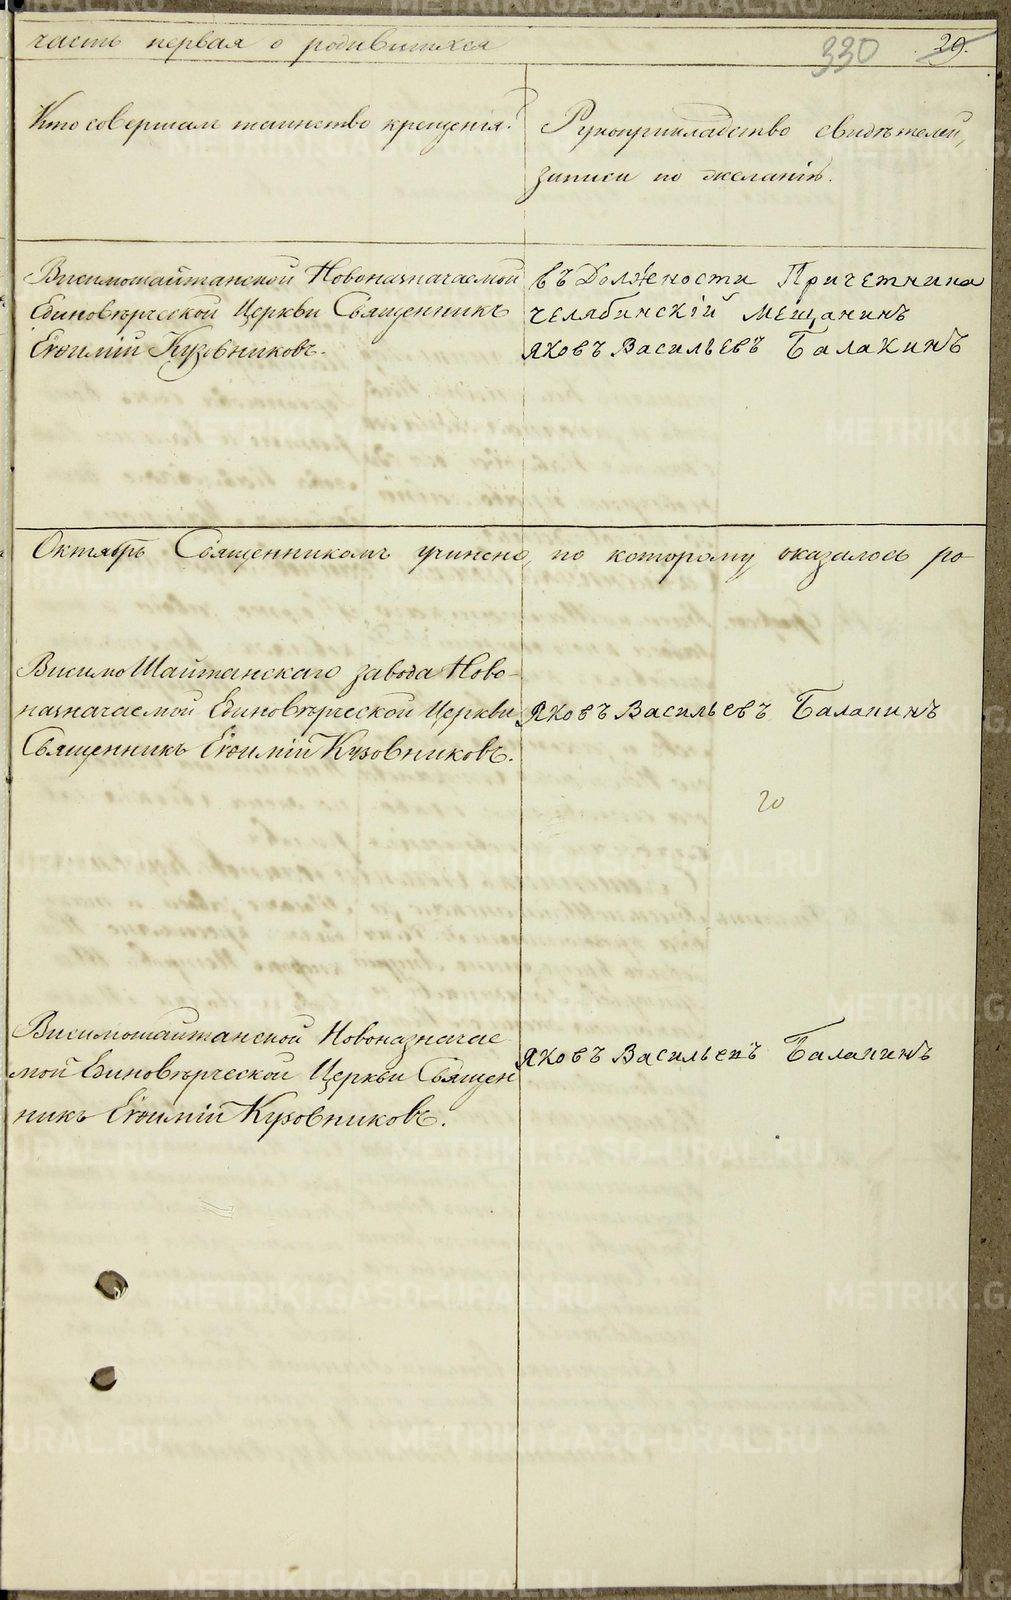 часть первая о родившихся 330 29.
Кто совершалъ таинство крещенія.
Рукоприкладство свидѣтелей,
записи по желанію.
Висимошайтанской Новоназначаемой
Единовѣрческой Церкви Священникъ
Евѳимій Кузовниковъ.
въ Должности Причетника
челябинскій мещанинъ
Яковъ Васильевъ Балакинъ
Октябрь Священникомъ учинено, по которому оказалось ро
Висимо Шайтанскаго завода Ново-
назначаемой Единовѣрческой Церкви
Священникъ Евѳимій Кузовниковъ.
Яковъ Васильевъ Балакинъ
20
Висимошайтанской Новоназначае
мой Единовѣрческой Церкви Священ
никъ Евѳимій Кузовниковъ.
Яковъ Васильевъ Балакинъ
METRIKI.GASO-URAL.RU